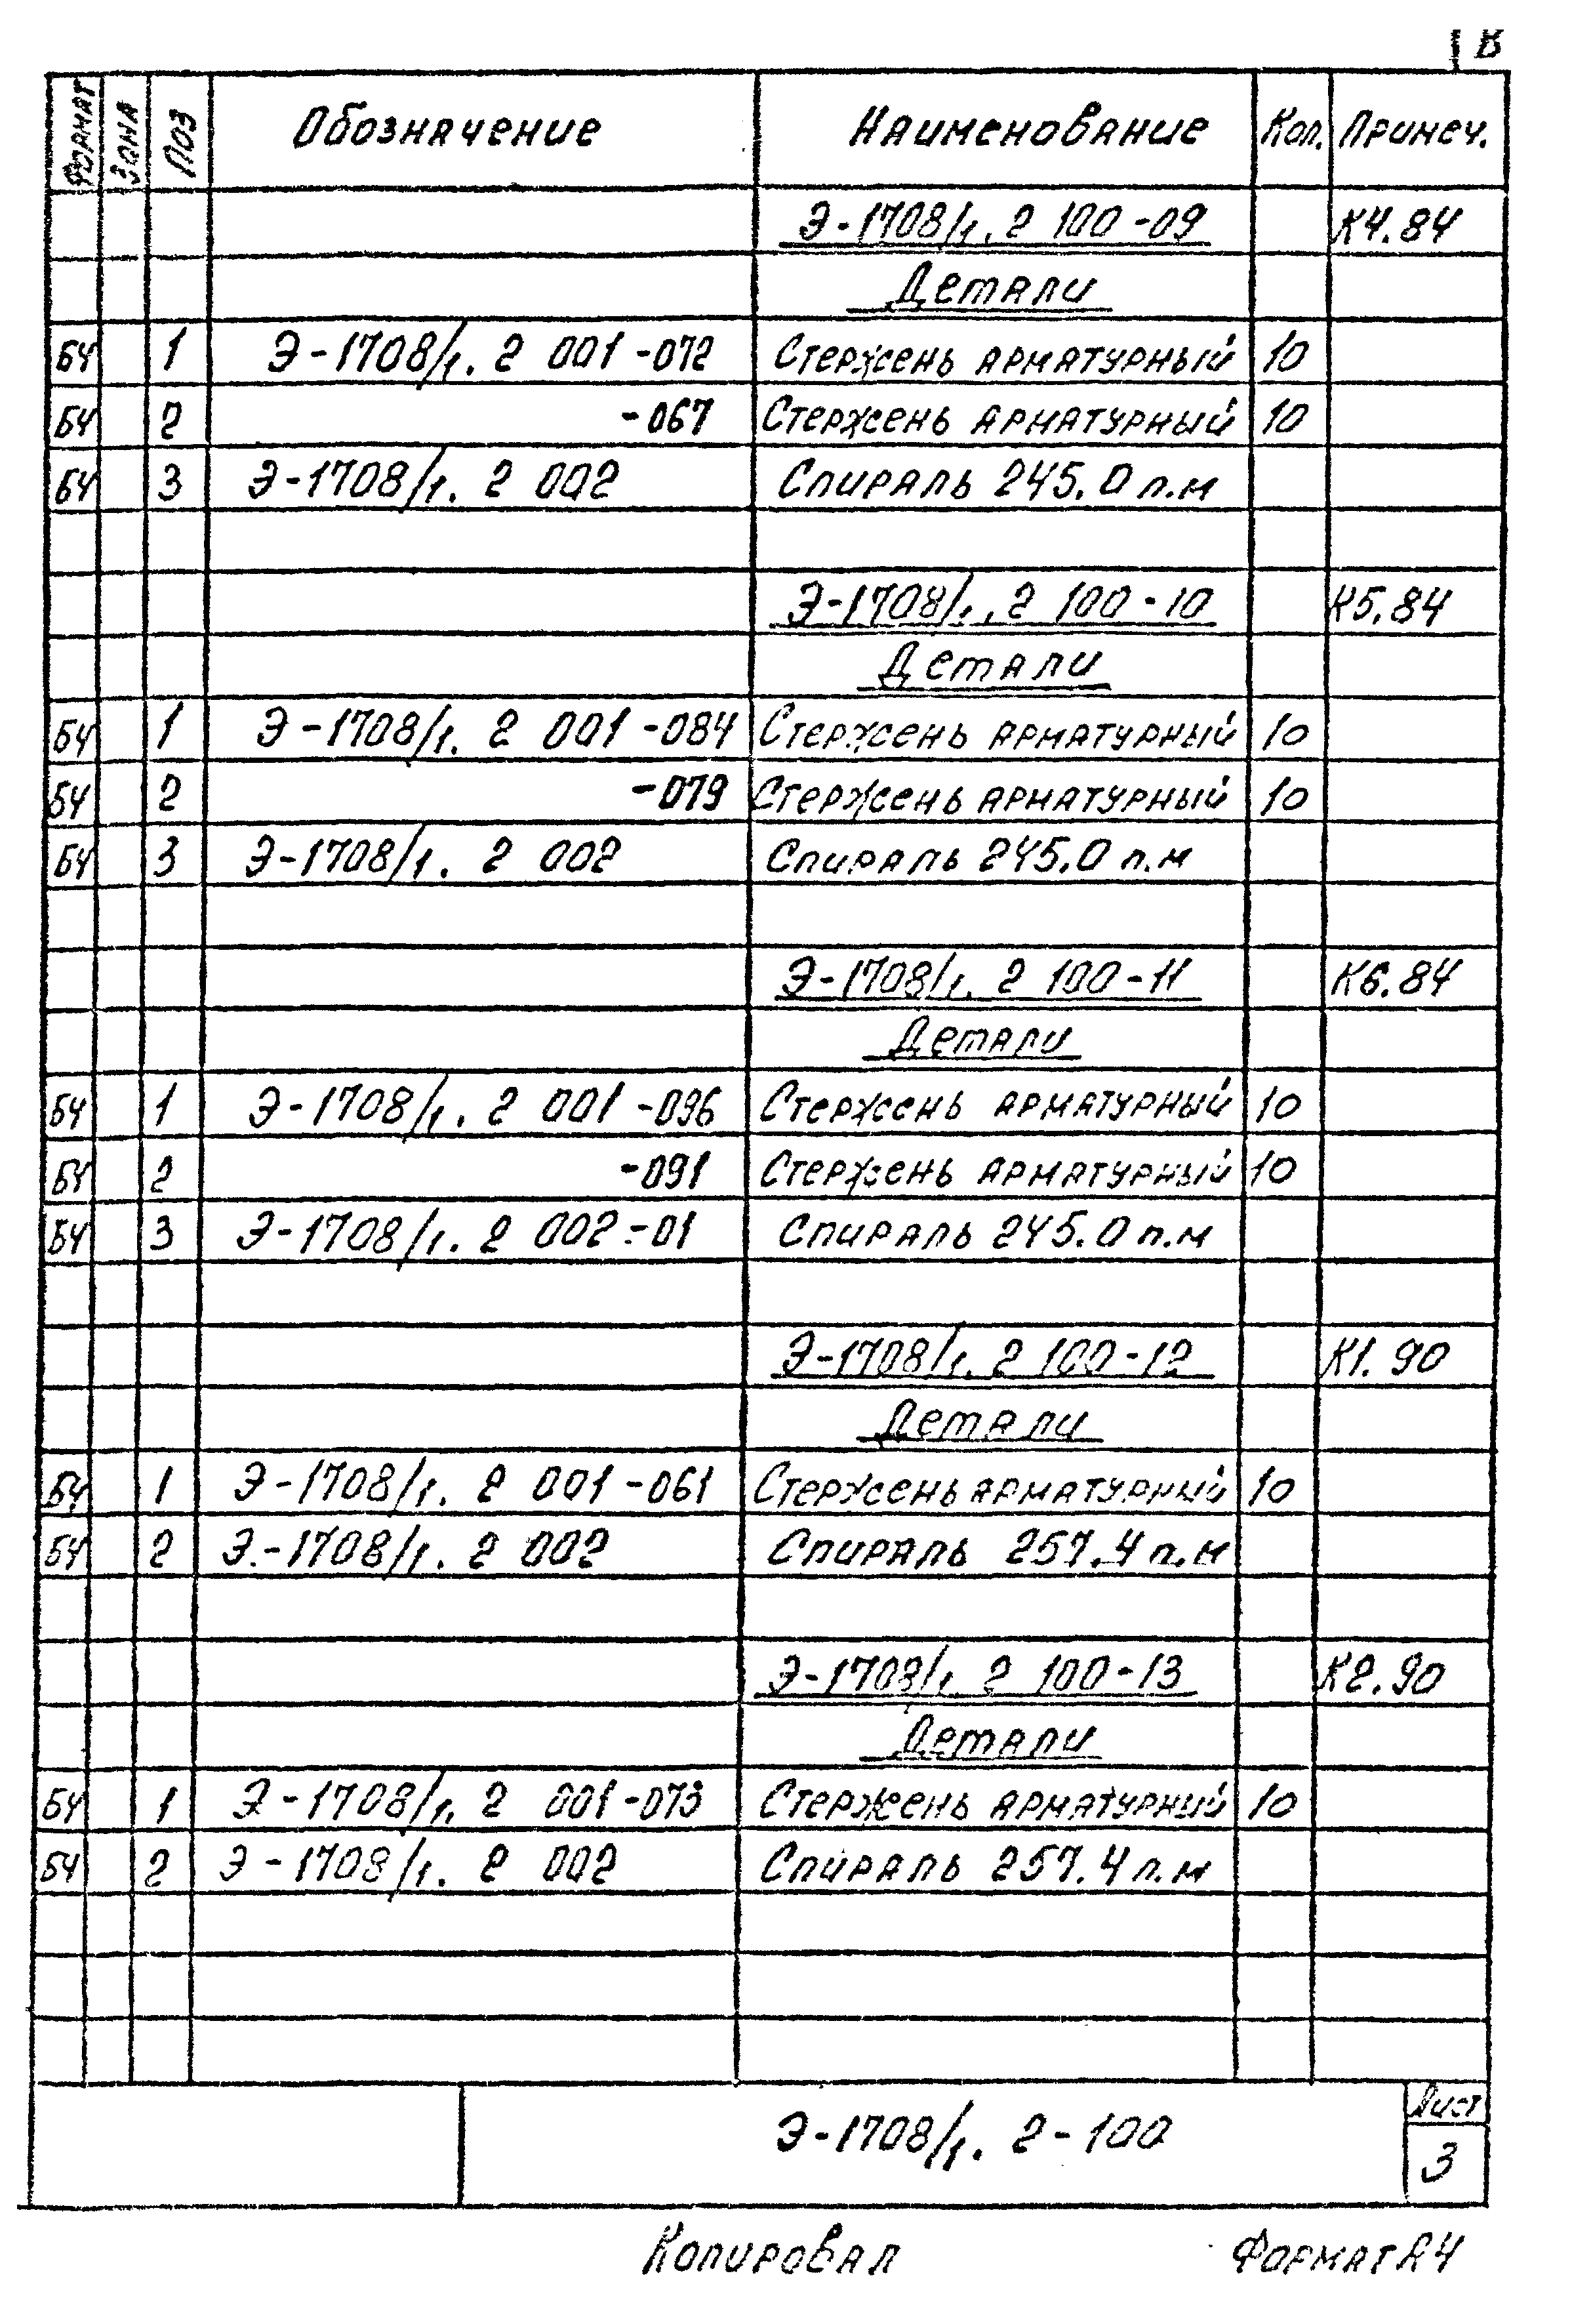 В
Формат Зона Поз Обозначение Наименование Кол. Примеч.
Э-1708/1.2 100-09 К4.84
Детали
БЧ 1 Э-1708/1.2 001-072 Стержень арматурный 10
БЧ 2 -067 Стержень арматурный 10
БЧ 3 Э-1708/1.2 002 Спираль 245.0 п.м
Э-1708/1.2 100-10 К5.84
Детали
БЧ 1 Э-1708/1.2 001-084 Стержень арматурный 10
БЧ 2 -079 Стержень арматурный 10
БЧ 3 Э-1708/1.2 002 Спираль 245.0 п.м
Э-1708/1.2 100-11 К6.84
Детали
БЧ 1 Э-1708/1.2 001-096 Стержень арматурный 10
БЧ 2 -091 Стержень арматурный 10
БЧ 3 Э-1708/1.2 002-01 Спираль 245.0 п.м
Э-1708/1.2 100-12 К1.90
Детали
БЧ 1 Э-1708/1.2 001-061 Стержень арматурный 10
БЧ 2 Э-1708/1.2 002 Спираль 257.4 п.м
Э-1708/1.2 100-13 К2.90
Детали
БЧ 1 Э-1708/1.2 001-073 Стержень арматурный 10
БЧ 2 Э-1708/1.2 002 Спираль 257.4 п.м
Э-1708/1.2-100
Лист
3
Копировал Формат А4